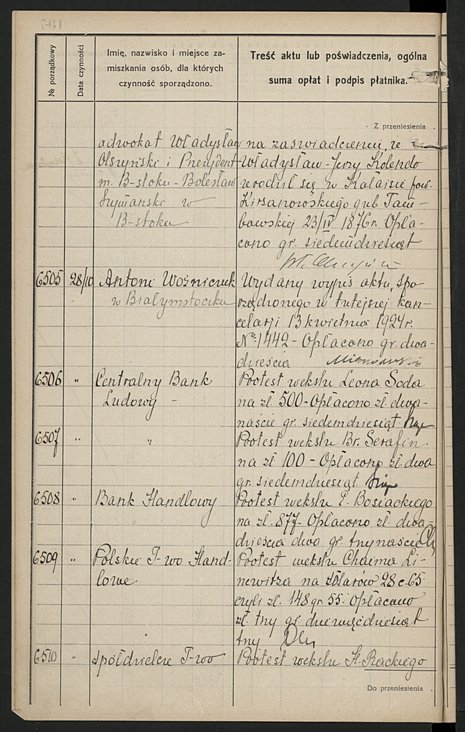 № porządkowy
Data czynności
Imię, nazwisko i miejsce zamieszkania osób, dla których czynność sporządzono.
Treść aktu lub poświadczenia, ogólna
suma opłat i podpis płatnika.
Z przeniesienia
adwokat Władysław
Olszyński i Prezydent
m. B-stoku - Bolesław
Szymański w
B-stoku
na zaświadczeniu, że
Władysław-Jerzy Kolendo
urodził się w
Kirsanowskiego gub. Tam-
bowskiej 23/IV 1876 r. Opła-
cono gr. siedemdziesiąt
6505 28/10 Antoni Woźniczuk
w Białymstoku
Wydany wypis aktu, spo-
rządzonego w tutejszej kan-
celarji 13 kwietnia 1924 r.
№ 1442 - Opłacono gr. dwa-
dzieścia
6506 " Centralny Bank
Ludowy -
Protest wekslu Leona Soda
na zł. 500 - Opłacono zł. dwa-
naście gr. siedemdziesiąt
6507 " "
Protest wekslu Br. Serafin
na zł. 100 - Opłacono zł. dwa
gr. siedemdziesiąt
6508 " Bank Handlowy
Protest wekslu Bosiackiego
na zł. 877. Opłacono zł. dwa-
dzieścia dwa gr. trzynaście
6509 " Polskie T-wo Hand-
lowe
Protest wekslu Chaima Li-
newitza na dolarów 28 c. 65
czyli zł. 148 gr. 55. Opłacono
zł. trzy gr. dziewięćdziesiąt
trzy
6510 " Spółdzielcze T-wo
Protest wekslu St. Rackiego
Do przeniesienia